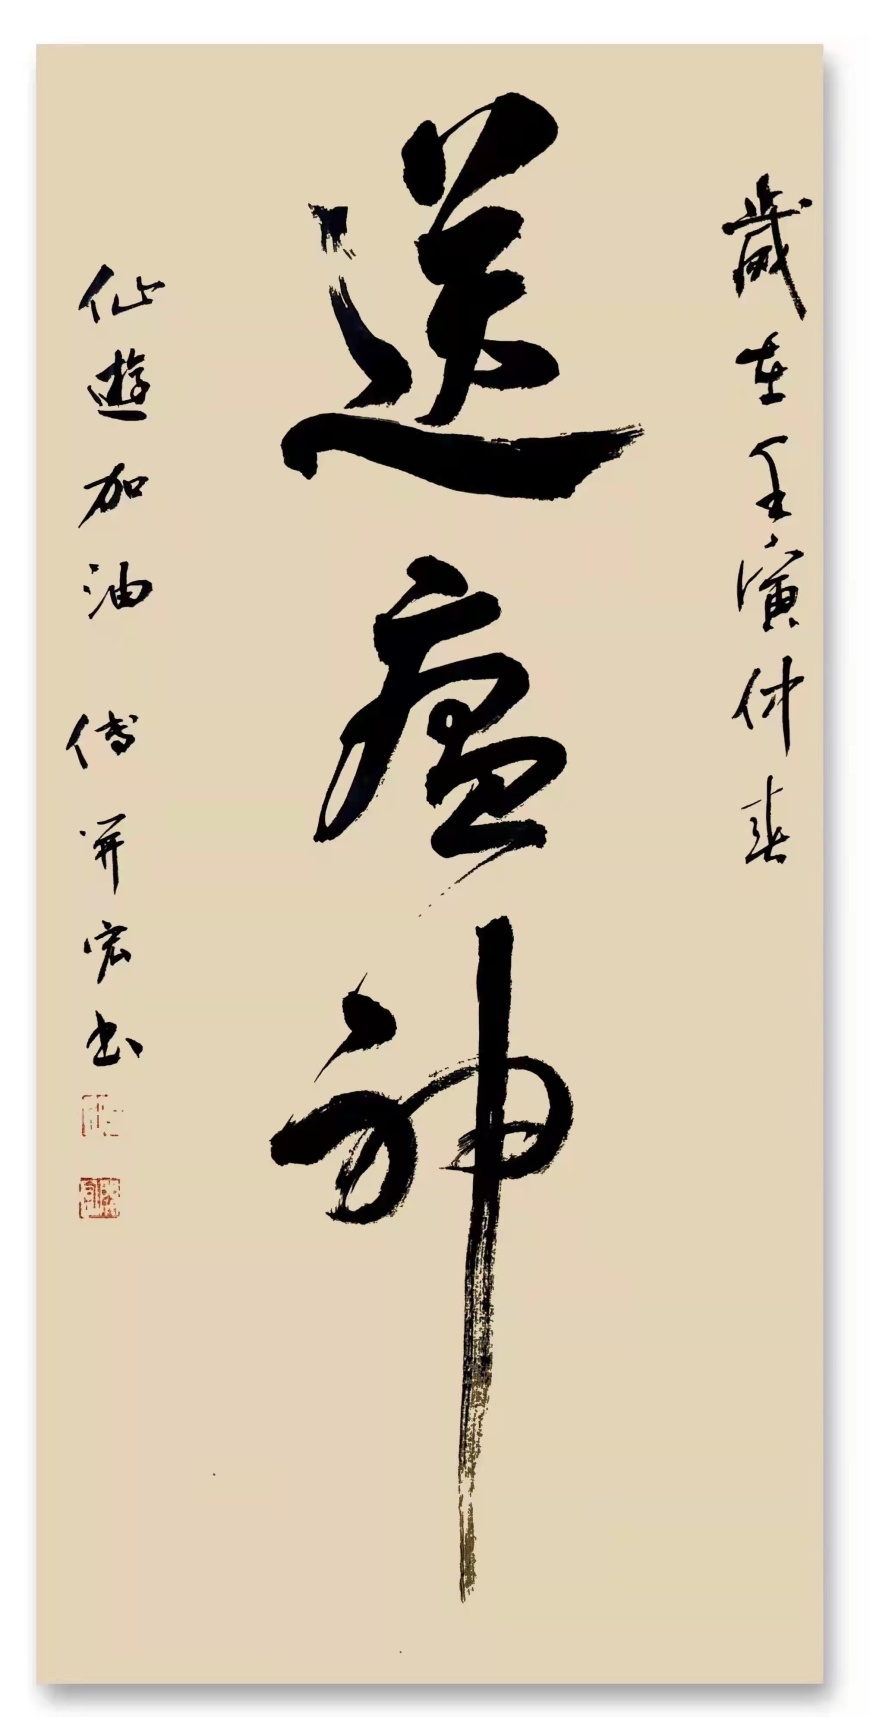 歲在壬寅仲春
送瘟神
仙遊加油 傅開宏书